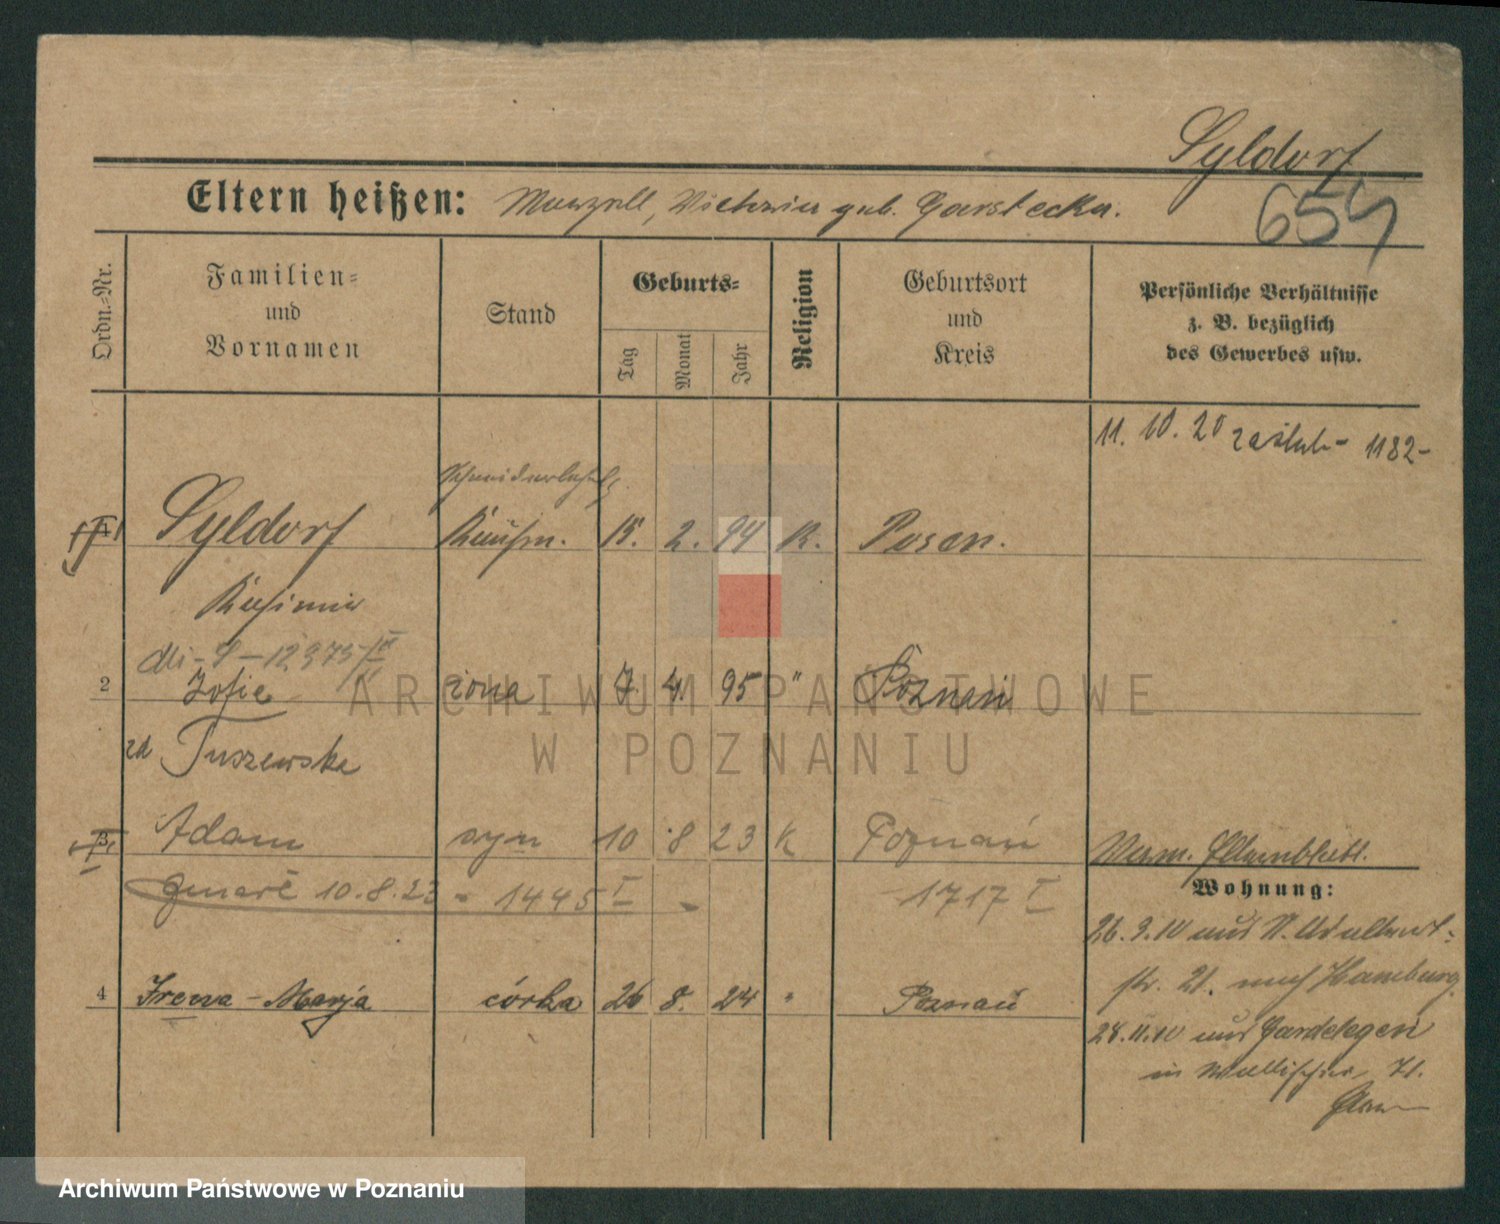 Syldorf
654
Eltern heißen: Marzell, Victoria geb. Garstecka.
Ordn.-Nr.
Familien-
und
Vornamen
Stand
Geburts-
Tag
Monat
Jahr
Religion
Geburtsort
und
Kreis
Persönliche Verhältnisse
z. B. bezüglich
des Gewerbes usw.
11. 10. 20 zaślub- 1182-
Syldorf Kaufm. 15. 2. 94 K. Posen.
Kasimir
2 Zofie żona 7. 4. 95 " Poznań
zd Tuszewska
3 Adam syn 10 8 23 K Poznań
Verm. Elternblatt.
zmarł 10.8.23 - 1445 I - 1717 I
Wohnung:
26. 9. 10 aus
str. 21. nach Hamburg.
4 Irena - Marja córka 26 8. 24 " Poznań
28. 11. 10 aus Gardelegen
in Wallischei
ARCHIWUM PAŃSTWOWE
W POZNANIU
Archiwum Państwowe w Poznaniu